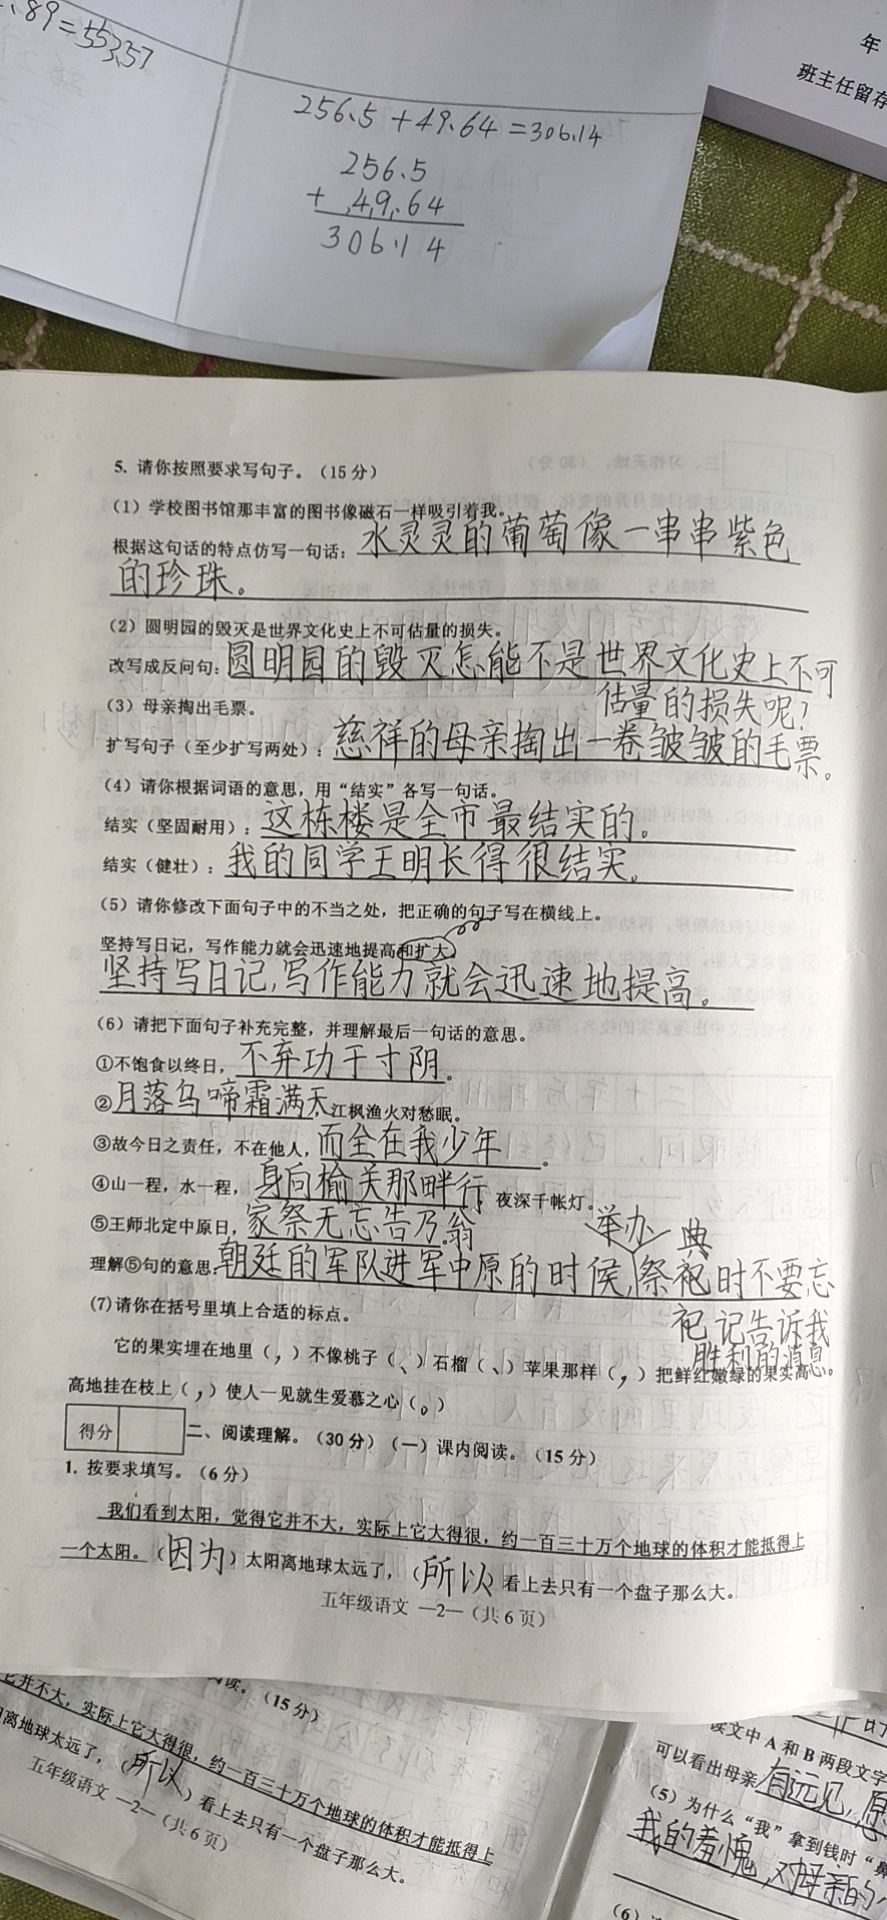 .89=553.57
256.5+49.64=306.14
256.5
+ 49.64
306.14
年
班主任留存
5. 请你按照要求写句子。(15分)
(1)学校图书馆那丰富的图书像磁石一样吸引着我。
根据这句话的特点仿写一句话:水灵灵的葡萄像一串串紫色
的珍珠。
(2)圆明园的毁灭是世界文化史上不可估量的损失。
改写成反问句:圆明园的毁灭怎能不是世界文化史上不可
估量的损失呢?
(3)母亲掏出毛票。
扩写句子(至少扩写两处):慈祥的母亲掏出一卷皱皱的毛票。
(4)请你根据词语的意思,用“结实”各写一句话。
结实(坚固耐用):这栋楼是全市最结实的。
结实(健壮):我的同学王明长得很结实。
(5)请你修改下面句子中的不当之处,把正确的句子写在横线上。
坚持写日记,写作能力就会迅速地提高和扩大。
坚持写日记,写作能力就会迅速地提高。
(6)请把下面句子补充完整,并理解最后一句话的意思。
①不饱食以终日,不弃功于寸阴。
②月落乌啼霜满天,江枫渔火对愁眠。
③故今日之责任,不在他人,而全在我少年。
④山一程,水一程,身向榆关那畔行,夜深千帐灯。
⑤王师北定中原日,家祭无忘告乃翁。
举办 典
理解⑤句的意思:朝廷的军队进军中原的时候,祭祀时不要忘
祀 记告诉我
胜利的消息。
(7)请你在括号里填上合适的标点。
它的果实埋在地里(,)不像桃子(、)石榴(、)苹果那样(,)把鲜红嫩绿的果实高
高地挂在枝上(,)使人一见就生爱慕之心(。)
得分
二、阅读理解。(30分)(一)课内阅读。(15分)
1. 按要求填写。(6分)
我们看到太阳,觉得它并不大,实际上它大得很,约一百三十万个地球的体积才能抵得上
一个太阳。(因为)太阳离地球太远了,(所以)看上去只有一个盘子那么大。
五年级语文 —2—(共6页)
阅读。(15分)
它并不大,实际上它大得很,约一百三十万个地球的体积才能抵得上
离地球太远了,(所以)看上去只有一个盘子那么大。
五年级语文 —2—(共6页)
读文中A和B两段文字
可以看出母亲有远见,
(5)为什么“我”拿到钱时“鼻
我的羞愧,对母亲的
(6)